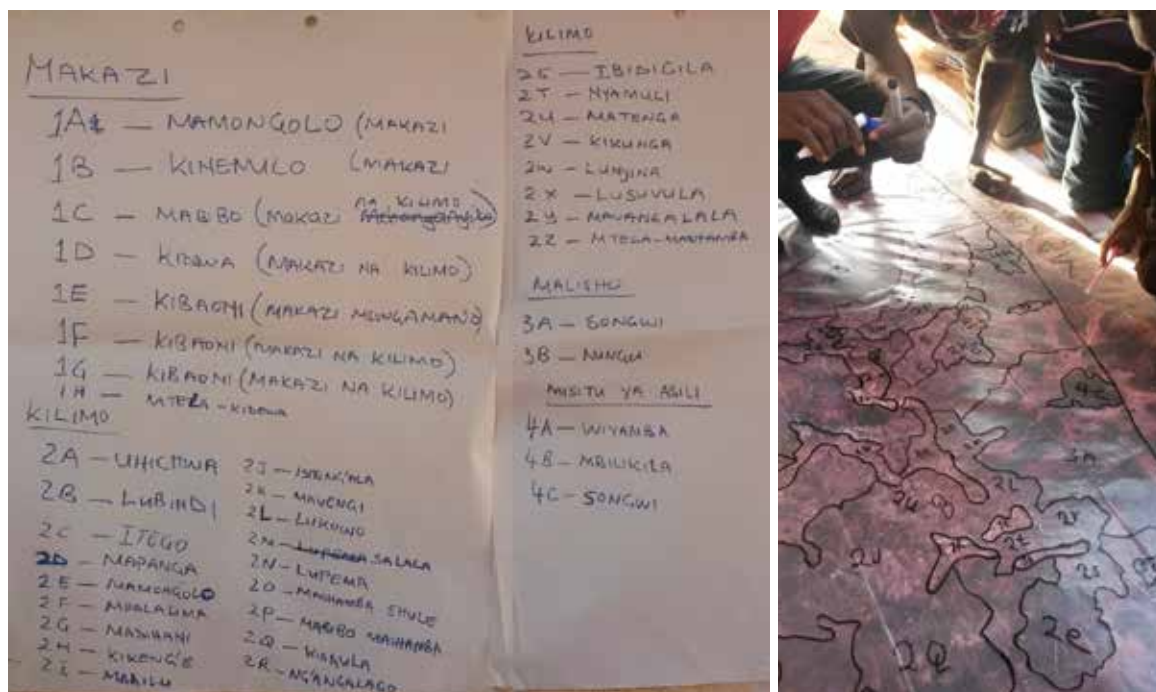 MAKAZI
1A — MAMONGOLO (MAKAZI
1B — KINEMULO (MAKAZI
1C — MAGIBO (MAKAZI NA KILIMO)
1D — KIDEWA (MAKAZI NA KILIMO)
1E — KIBAONI (MAKAZI MSONGAMANO)
1F — KIBAONI (MAKAZI NA KILIMO)
1G — KIBAONI (MAKAZI NA KILIMO)
1H — MTEZA - KIDEWA
KILIMO
2A — UHICHWA
2B — LUBINDI
2C — ITEGO
2D — MAPANGA
2E — MAMONGOLO
2F —
2G — MASIHANI
2H — KIKENG'E
2I — MBAILU
2J —
2K — MAVENGI
2L — LUKOWO
2M — LUPEMA SALALA
2N — LUPEMA
2O — MAIHAMBA SHULE
2P — MAGIBO MAIHAMBA
2Q —
2R — NG'ANGALAGO
KILIMO
2S — IBIDIGILA
2T — NYAMULI
2U — MATENGA
2V — KIKUNGA
2W — LUNJINA
2X — LUSUVULA
2Y — MAVANGALALA
2Z —
MALISHO
3A — SONGWI
3B — NUNGU
MISITU YA ASILI
4A — WIYAMBA
4B — MBILIKILA
4C — SONGWI
3A
2L
2U
2t
2S
2Q
2R